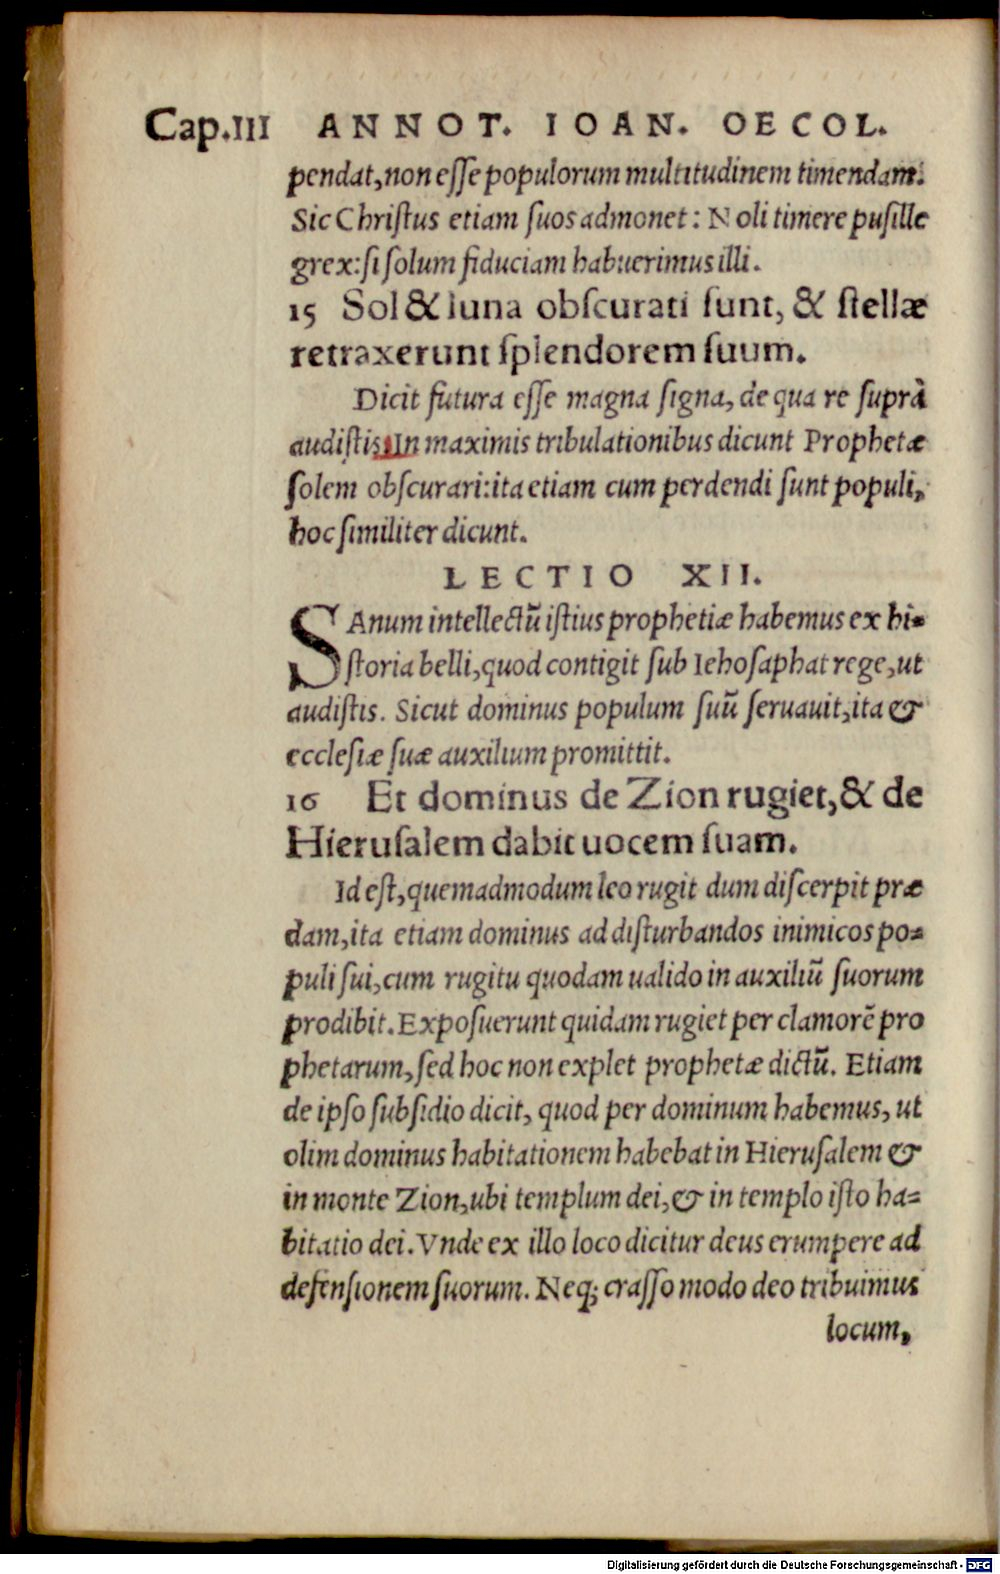 Cap.III ANNOT. IOAN. OECOL.
pendat, non eſſe populorum multitudinem timendam.
Sic Chriſtus etiam ſuos admonet: Noli timere puſille
grex: ſi ſolum fiduciam habuerimus illi.
15 Sol & luna obſcurati ſunt, & ſtellæ
retraxerunt ſplendorem ſuum.
Dicit futura eſſe magna ſigna, de qua re ſuprà
audiſtis. In maximis tribulationibus dicunt Prophetæ
ſolem obſcurari: ita etiam cum perdendi ſunt populi,
hoc ſimiliter dicunt.
LECTIO XII.
SAnum intellectũ iſtius prophetiæ habemus ex hi-
ſtoria belli, quod contigit ſub Iehoſaphat rege, ut
audiſtis. Sicut dominus populum ſuũ ſeruauit, ita &
eccleſiæ ſuæ auxilium promittit.
16 Et dominus de Zion rugiet, & de
Hieruſalem dabit uocem ſuam.
Id eſt, quemadmodum leo rugit dum diſcerpit præ
dam, ita etiam dominus ad diſturbandos inimicos po-
puli ſui, cum rugitu quodam ualido in auxiliũ ſuorum
prodibit. Expoſuerunt quidam rugiet per clamorẽ pro
phetarum, ſed hoc non explet prophetæ dictũ. Etiam
de ipſo ſubſidio dicit, quod per dominum habemus, ut
olim dominus habitationem habebat in Hieruſalem &
in monte Zion, ubi templum dei, & in templo iſto ha-
bitatio dei. Vnde ex illo loco dicitur deus erumpere ad
defenſionem ſuorum. Neq; craſſo modo deo tribuimus
locum,
Digitalisierung gefördert durch die Deutsche Forschungsgemeinschaft - DFG